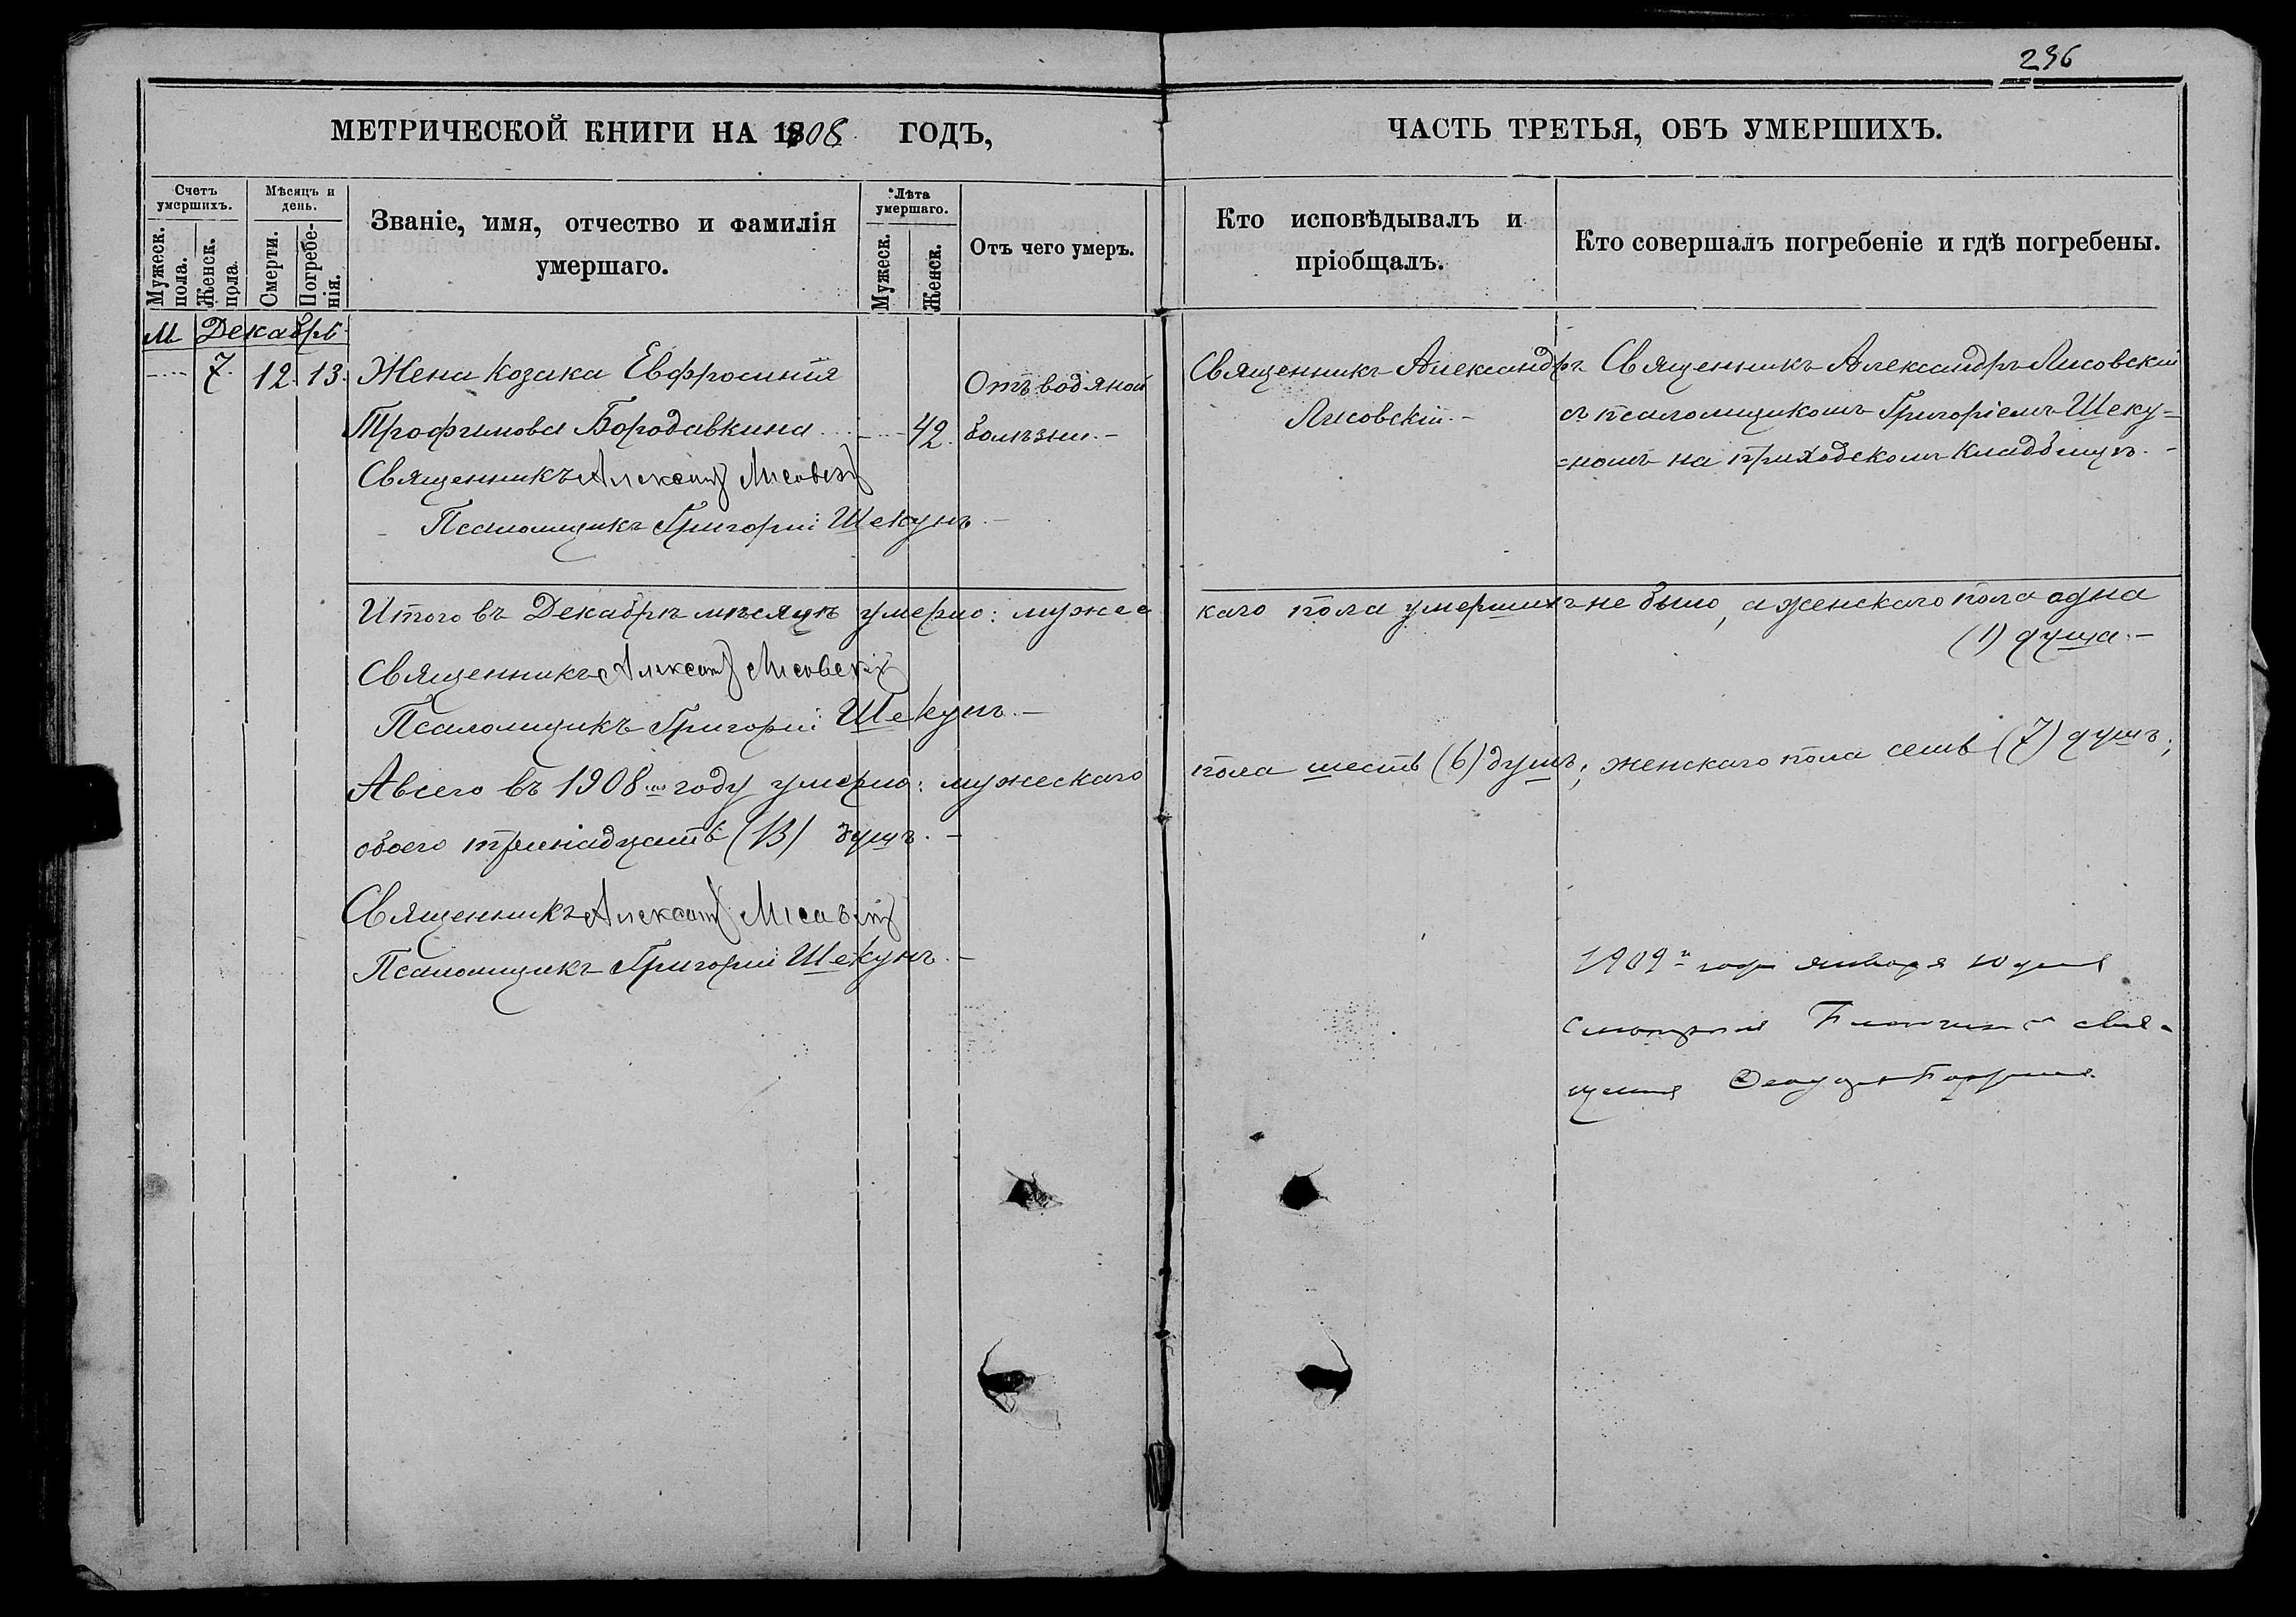 236
МЕТРИЧЕСКОЙ КНИГИ НА 1908 ГОДЪ,
ЧАСТЬ ТРЕТЬЯ, ОБЪ УМЕРШИХЪ.
Счетъ умершихъ.
Мужеск. пола.
Женск. пола.
Мѣсяцъ и день.
Смерти.
Погребенія.
Званіе, имя, отчество и фамилія умершаго.
Лѣта умершаго.
Мужеск.
Женск.
Отъ чего умеръ.
Кто исповѣдывалъ и пріобщалъ.
Кто совершалъ погребеніе и гдѣ погребены.
М Декабрь
7. 12. 13. Жена козака Евфросинія
Трофимова Бородавкина 42.
Отъ водяной
болѣзни.-
Священникъ Александръ
Лисовскій.-
Священникъ Александръ Лисовскій
съ псаломщикомъ Григоріемъ Шеку=
=номъ на приходскомъ кладбищѣ.-
Священникъ Александръ Лисовскій
Псаломщикъ Григорій Шекунъ.-
Итого въ Декабрѣ мѣсяцѣ умерло: мужес
каго пола умершихъ не было, а женскаго пола одна
(1) душа.-
Священникъ Александръ Лисовскій
Псаломщикъ Григорій Шекунъ.-
А всего въ 1908 году умерло: мужескаго
пола шесть (6) душъ; женскаго пола семь (7) душъ;
обоего тринадцать (13) душъ.-
Священникъ Александръ Лисовскій
Псаломщикъ Григорій Шекунъ.-
1909 года января 10 дня
свя-